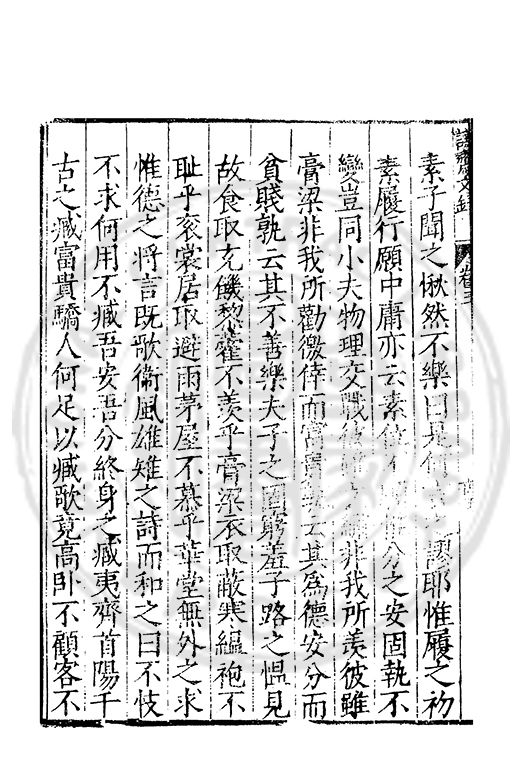 素子聞之愀然不樂曰是何言之謬耶惟履之初
素履行願中庸亦云素位不分之安固執不
變豈同小夫物理交戰彼雖非我所羨彼雖
膏粱非我所勸徼倖而富貴孰云其為德安分而
貧賤孰云其不善樂夫子之固窮羞子路之慍見
故食取充饑藜藿不羨乎膏粱衣取蔽寒縕袍不
耻乎袞裳居取避雨茅屋不慕乎華堂無外之求
惟德之將言既歌衞風雄雉之詩而和之曰不忮
不求何用不臧吾安吾分終身之臧夷齊首陽千
古之臧富貴驕人何足以臧歌竟高卧不顧客不
卷三